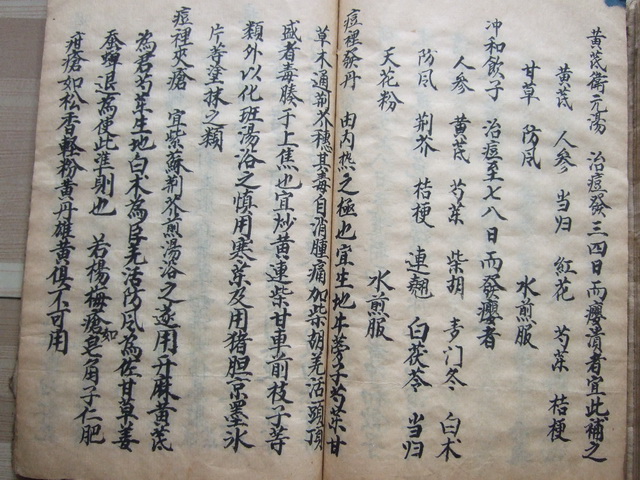 黄芪衛元湯　治痘發三四日而癢潰者宜此補之
黄芪　人參　当归　紅花　芍茱　桔梗
甘草　防风　水煎服
冲和飲子　治痘至七八日而發癢者
人參　黄芪　芍茱　柴胡　麦门冬　白术
防风　荆芥　桔梗　連翹　白茯苓　当归
天花粉　水煎服
痘裡發丹　由内热之極也宜生地牛蒡子芍茱甘
草木通荆芥穗其毒自消腫痛加柴胡羌活頭頂
盛者毒腠于上焦也宜炒黄連柴甘車前枝子等
類外以化班湯浴之慎用寒茱及用猪胆京墨氷
片等塗抹之類
痘裡夾瘡　宜紫蘇荆芥煎湯浴之遂用升麻黄芪
為君芍茱生地白术為臣羌活防风為佐甘草姜
蚕蝉退為使此準則也　若楊梅瘡如皂角子仁肥
疳瘡如松香輕粉黄丹雄黄俱不可用